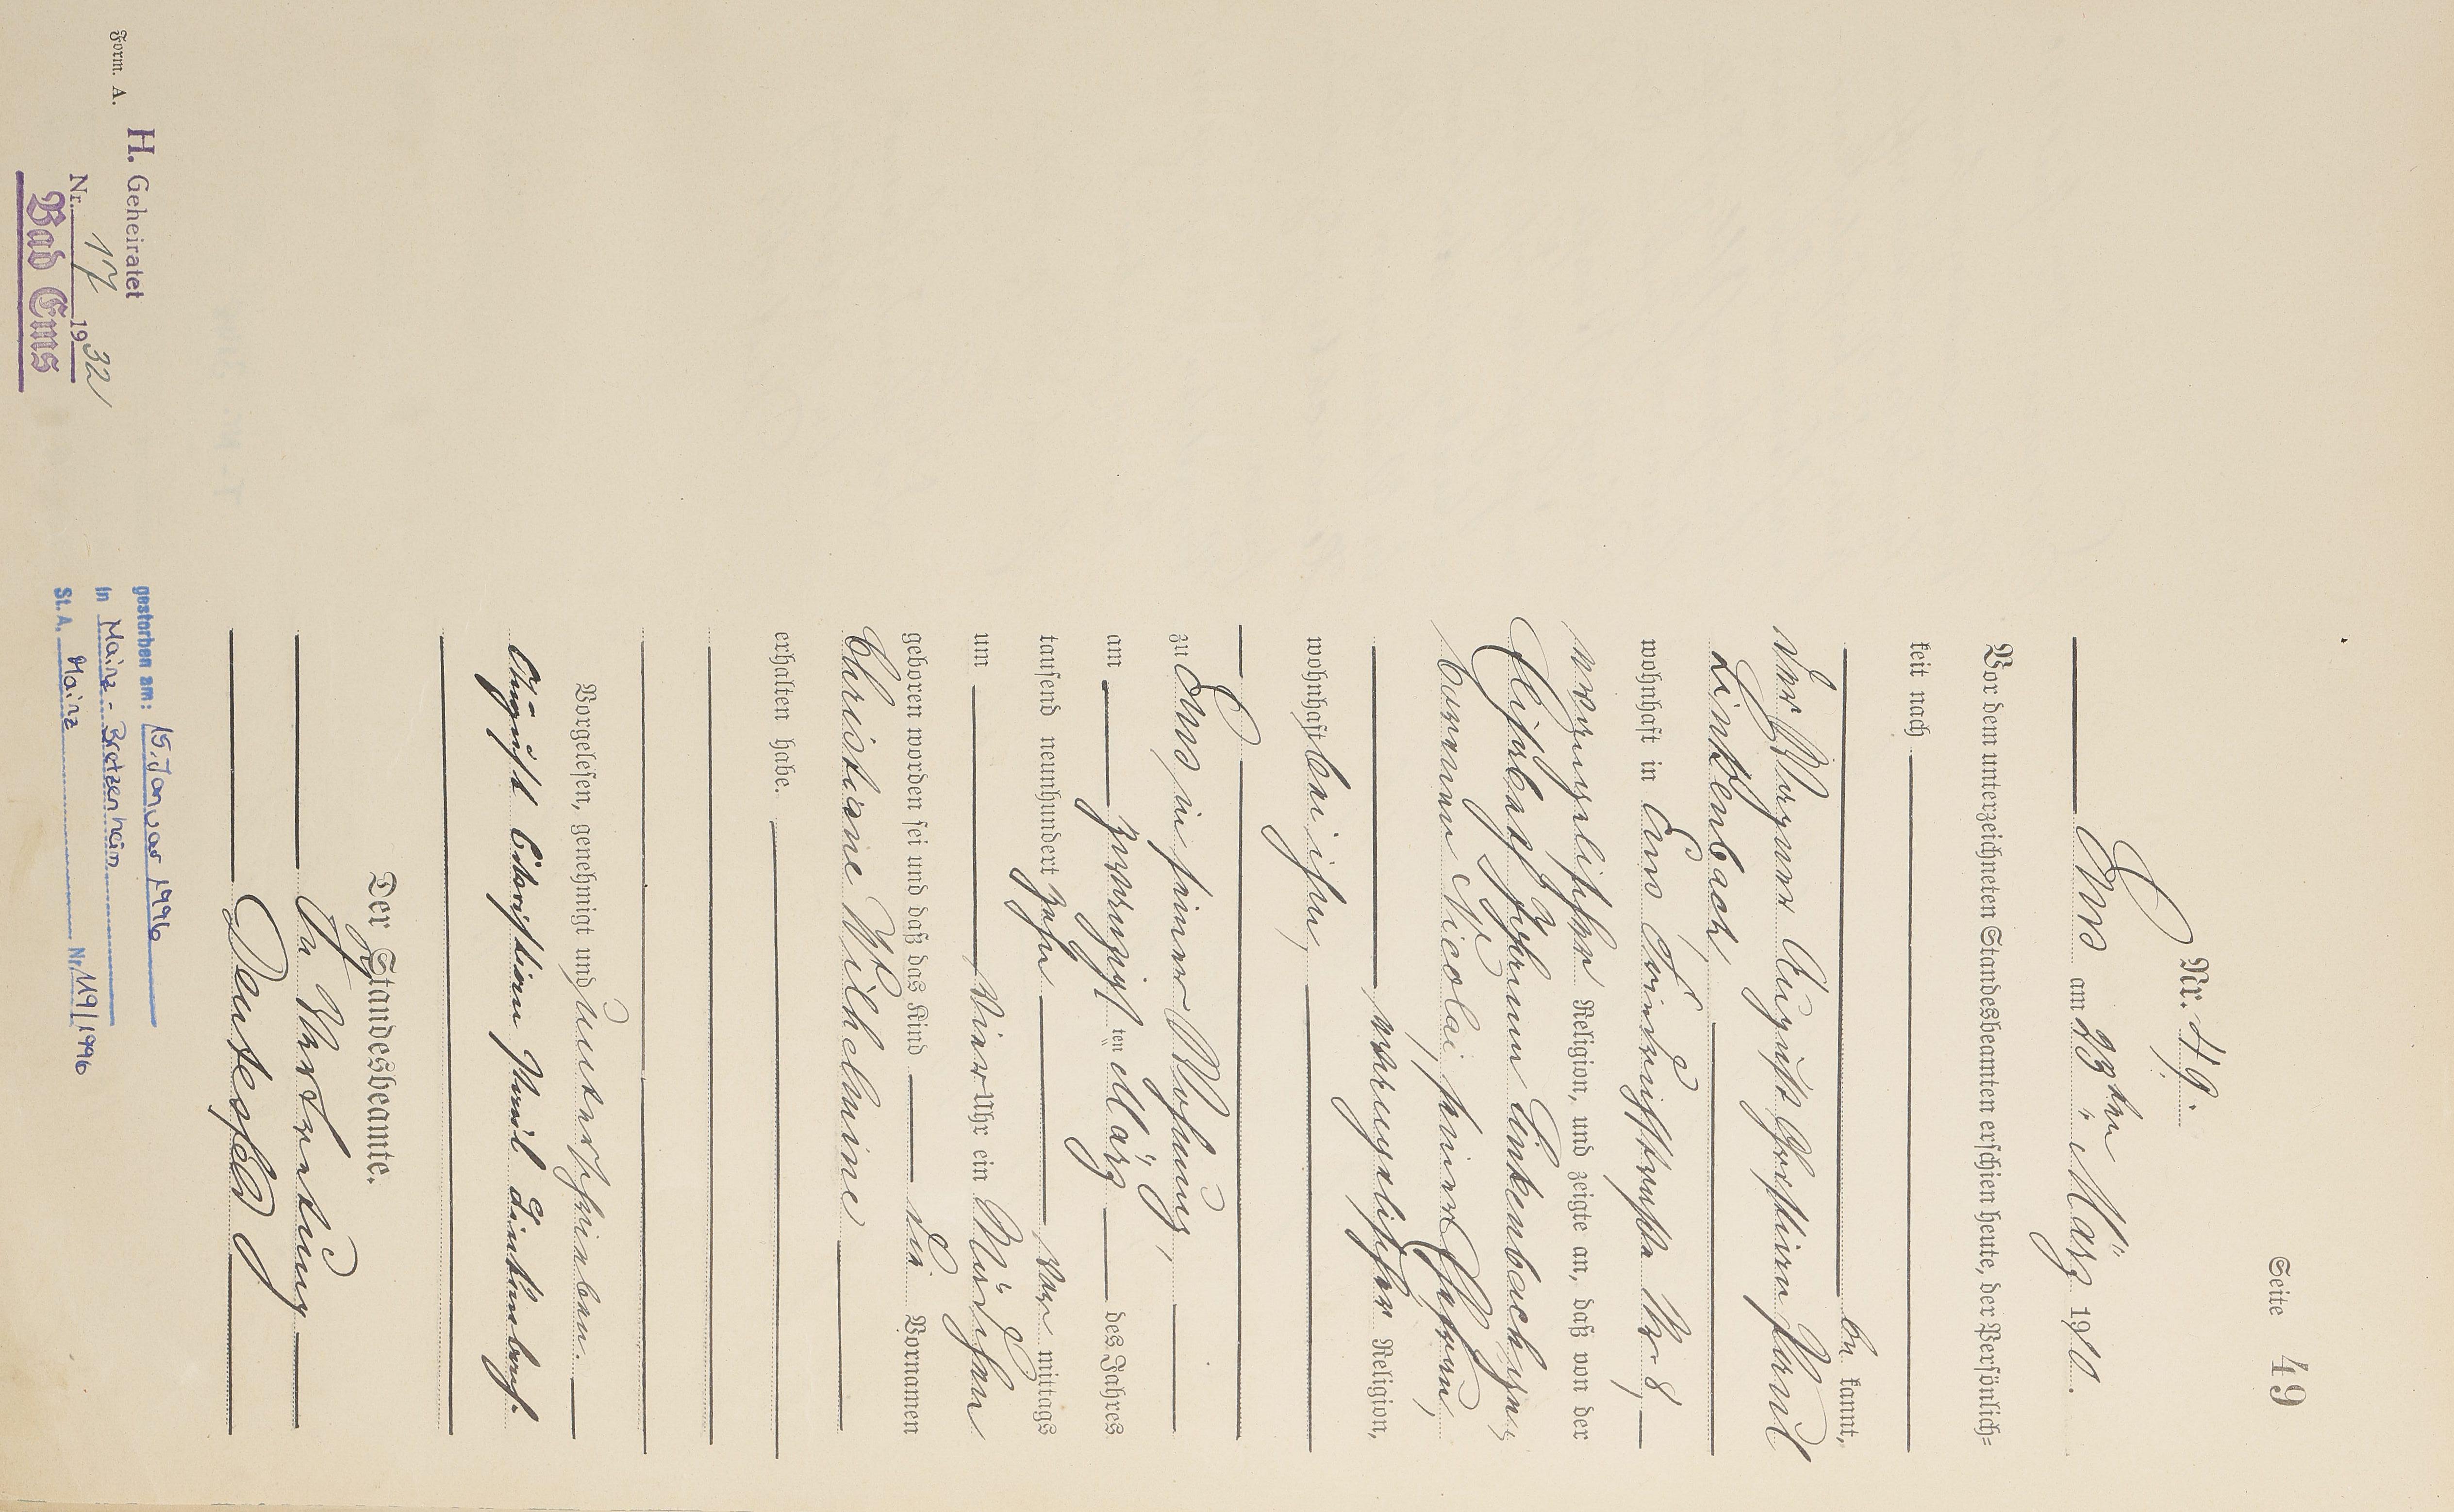 Seite 49
Nr. 49.
Ems am 23ten März 1910.
Vor dem unterzeichneten Standesbeamten erschien heute, der Persönlich=
keit nach
be kannt,
der August Christian Paul
Linkenbach,
wohnhaft in Ems, Friedrichstraße Nr. 8,
evangelischer Religion, und zeigte an, daß von der
Elisabeth Linkenbach, geb-
borenen Nicolai, seiner Ehefrau,
evangelischer Religion,
wohnhaft bei ihm,
zu Ems in seiner Wohnung,
am zwanzigsten März des Jahres
tausend neunhundert zehn vor mittags
um vier Uhr ein Mädchen
geboren worden sei und daß das Kind die Vornamen
Christiane Wilhelmine
erhalten habe.
Vorgelesen, genehmigt und unterschrieben.
August Christian Paul Linkenbach.
Der Standesbeamte.
In Vertretung
Deutesfeld
Form. A.
H. Geheiratet
Nr. 17 1932
Bad Ems
gestorben am: 15. Januar 1996
in Mainz-Bretzenheim
St. A. Mainz Nr. 119/1996